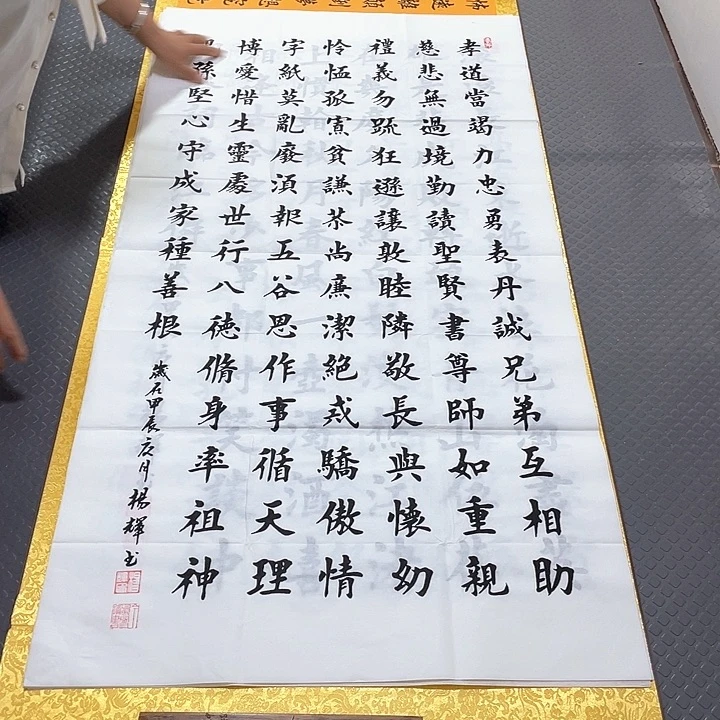 孝道當竭力忠勇表丹誠兄弟互相助
慈悲無過境勤讀聖賢書尊師如重親
禮義勿疏狂遜讓敦睦隣敬長與懷幼
怜恤孤寡貧謙恭尚廉潔絕戒驕傲情
字紙莫亂廢須報五谷恩作事循天理
博愛惜生靈處世行八德脩身率祖神
孫堅心守成家種善根
歲在甲辰月楊輝书